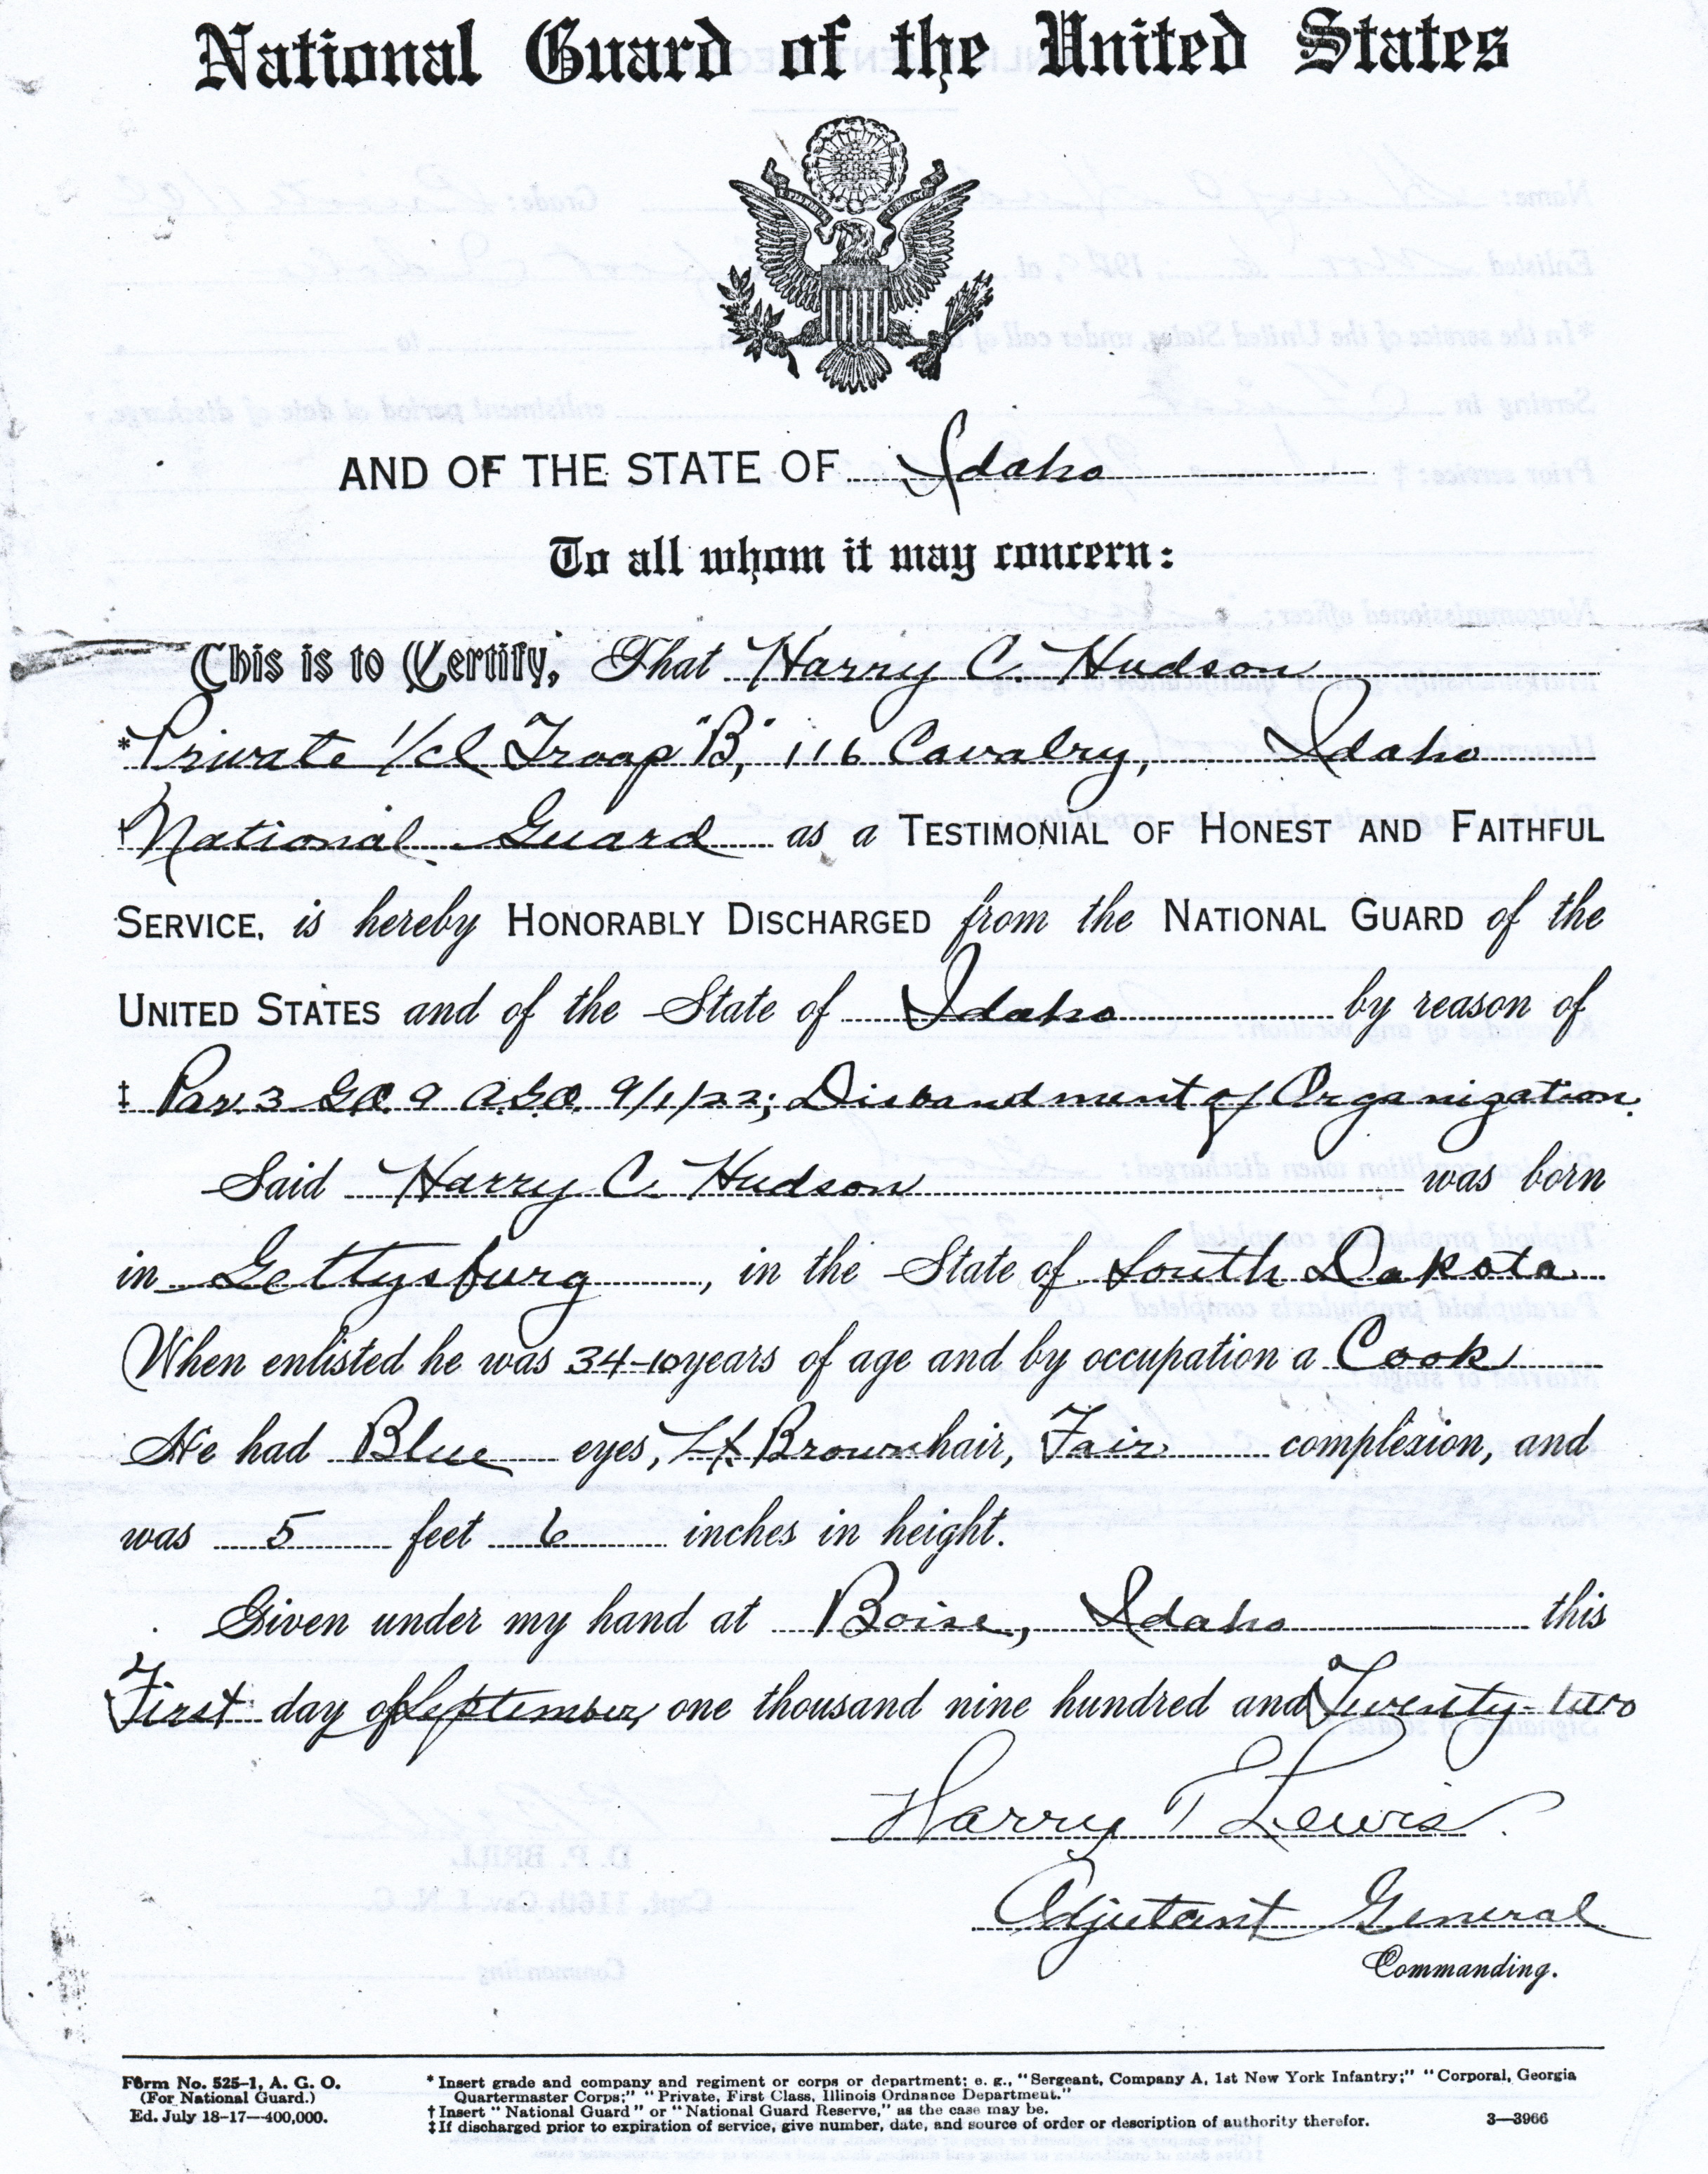 National Guard of the United States
AND OF THE STATE OF Idaho
To all whom it may concern:
This is to Certify, That Harry C. Hudson
*Private 1/cl Troop "B", 116 Cavalry, Idaho
†National Guard as a TESTIMONIAL OF HONEST AND FAITHFUL
SERVICE, is hereby HONORABLY DISCHARGED from the NATIONAL GUARD of the
UNITED STATES and of the State of Idaho by reason of
‡ Par. 3 G.O. 9 A.G.O. 9/1/22; Disbandment of Organization.
Said Harry C. Hudson was born
in Gettysburg, in the State of South Dakota
When enlisted he was 34-10 years of age and by occupation a Cook
He had Blue eyes, Lt Brown hair, Fair complexion, and
was 5 feet 6 inches in height.
Given under my hand at Boise, Idaho this
First day of September, one thousand nine hundred and Twenty-two
Harry T Lewis.
Adjutant General
Commanding.
Form No. 525-1, A. G. O.
(For National Guard.)
Ed. July 18-17—400,000.
* Insert grade and company and regiment or corps or department; e. g., "Sergeant, Company A, 1st New York Infantry;" "Corporal, Georgia
Quartermaster Corps;" "Private, First Class, Illinois Ordnance Department."
† Insert "National Guard" or "National Guard Reserve," as the case may be.
‡ If discharged prior to expiration of service, give number, date, and source of order or description of authority therefor.
3—3966